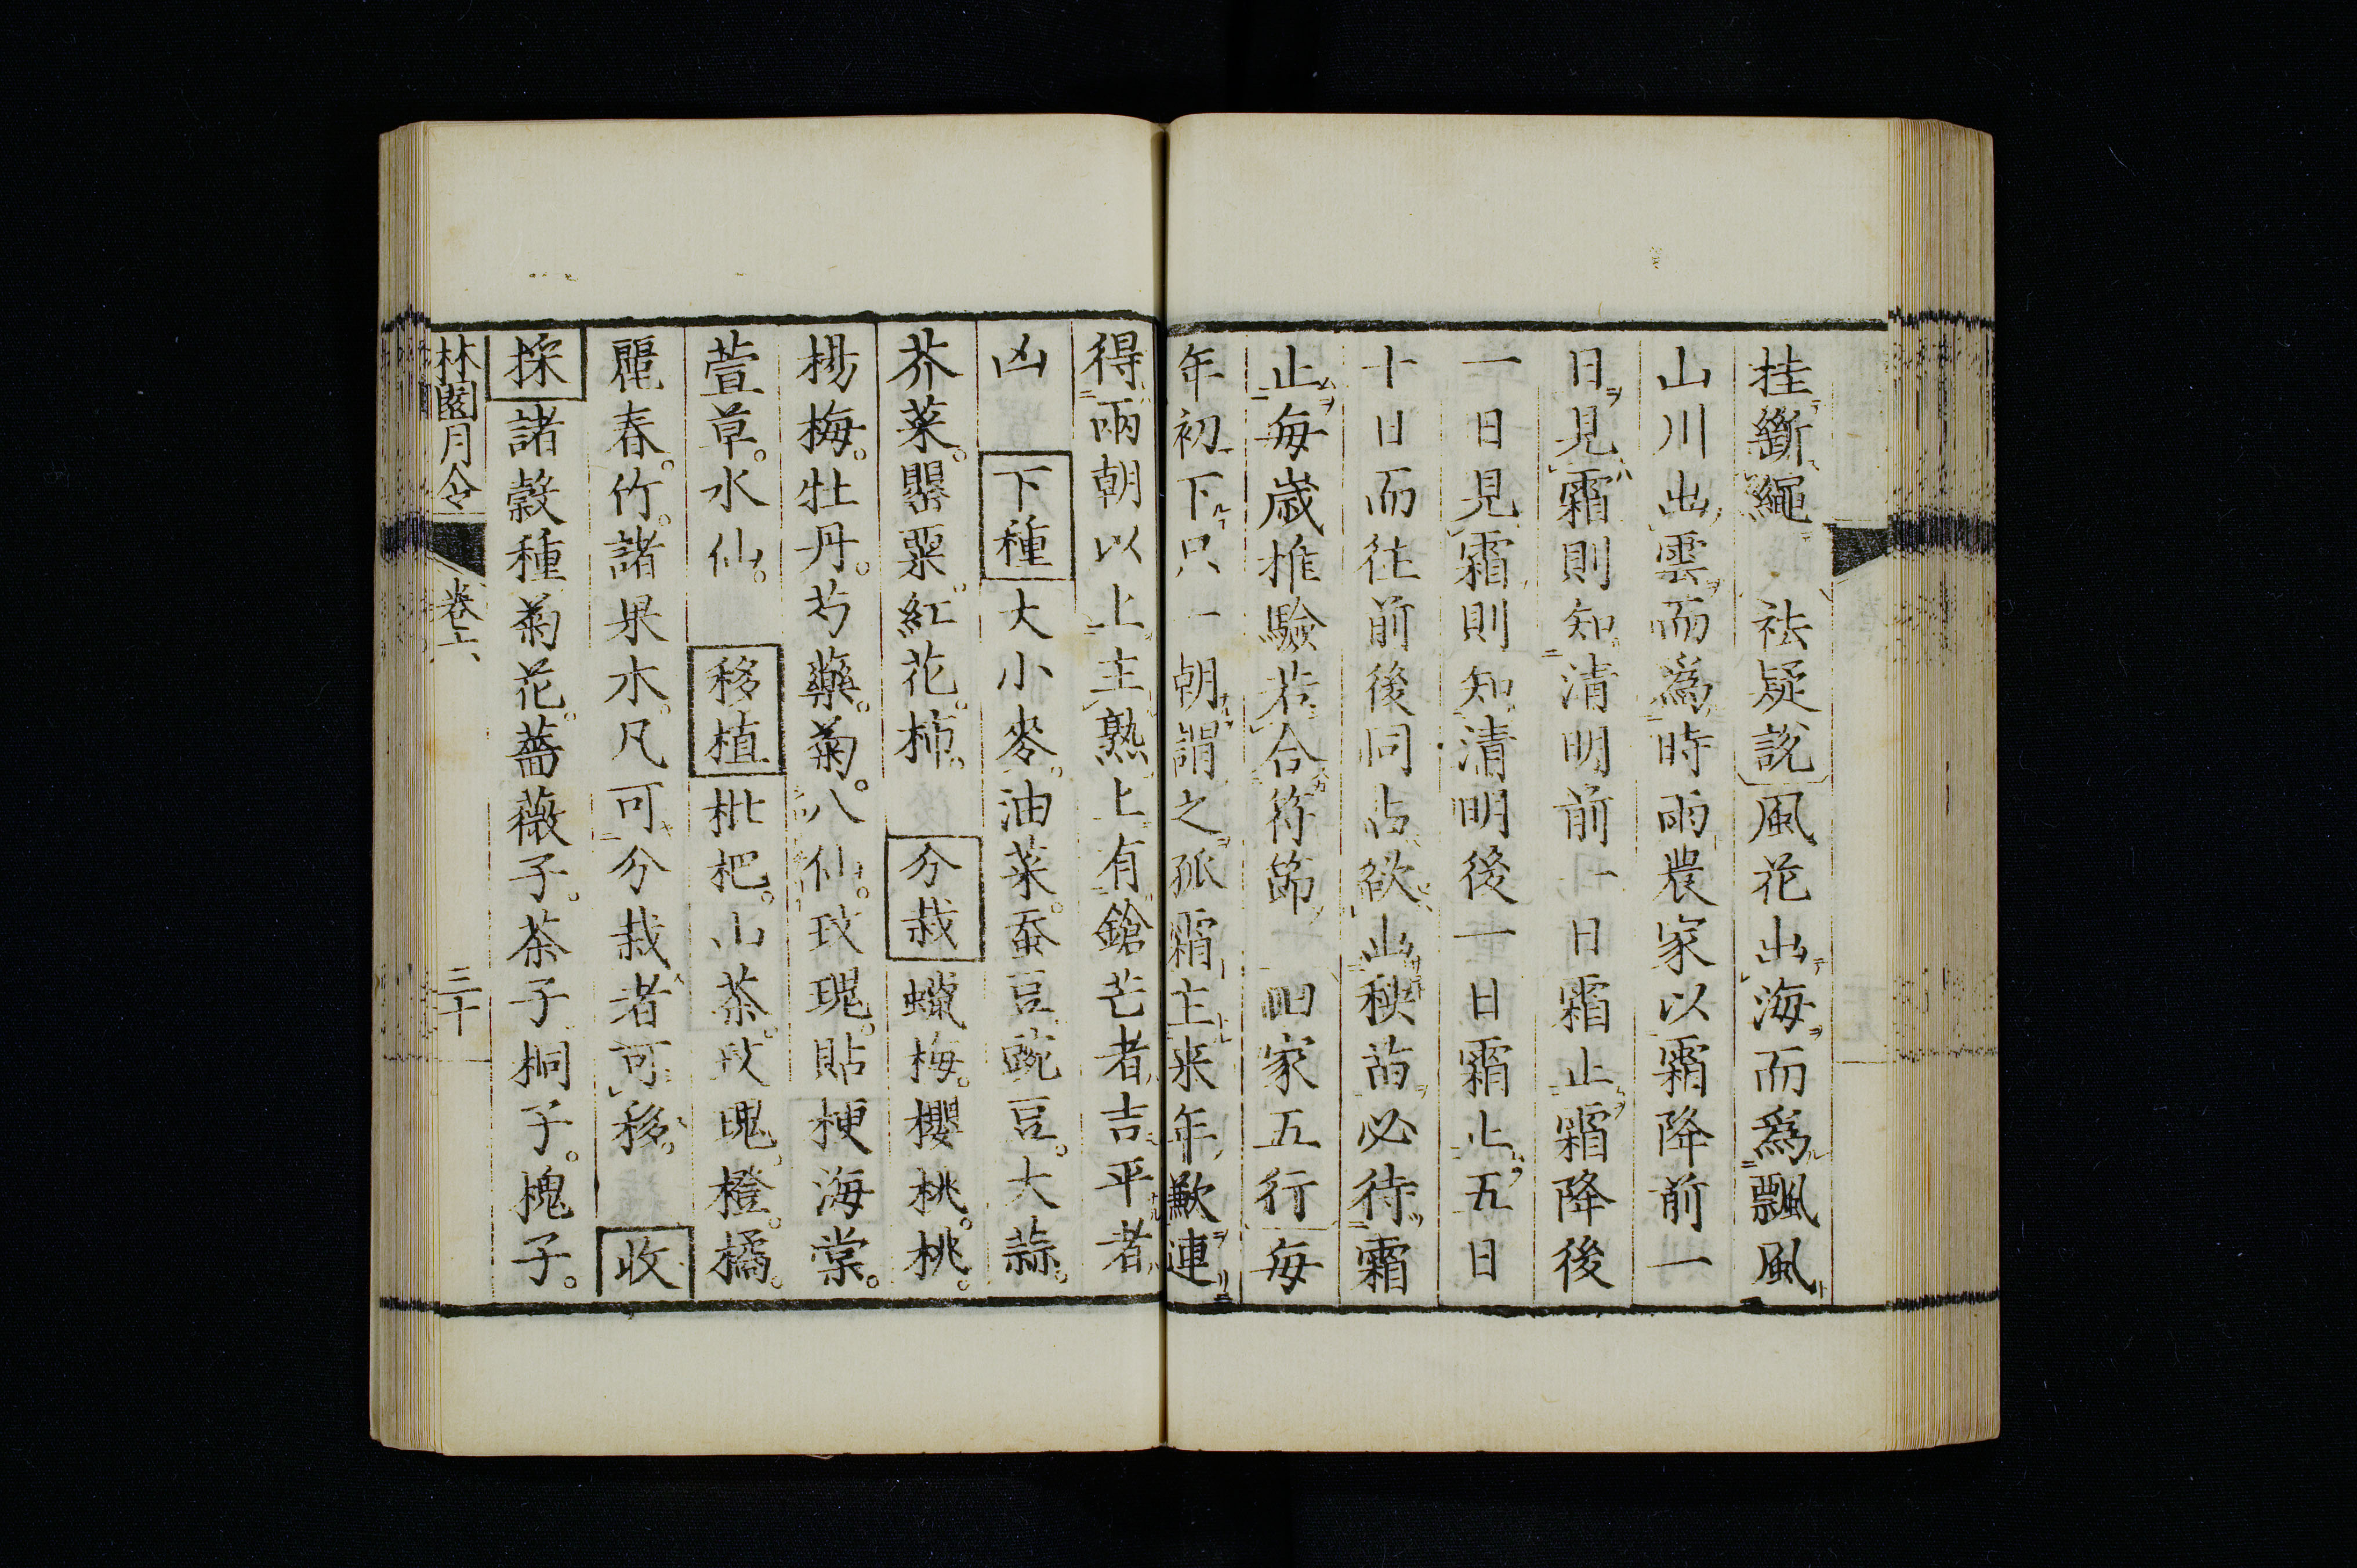 挂斷繩　祛疑説風花出海而爲飄風
山川出雲而爲時雨農家以霜降前一
日見霜則知清明前一日霜止霜降後
一日見霜則知清明後一日霜止五日
十日而往前後同占欲出秧苗必待霜
止每歲推驗若合符節　田家五行每
年初下只一朝謂之孤霜主来年歉連
得兩朝以上主熟上有鎗芒者吉平者
凶　下種大小麥。油菜。蚕豆豌豆。大蒜。
芥菜。罌粟。紅花。柿。　分栽蠟梅。櫻桃。桃。
楊梅。牡丹。芍藥。菊。八仙。玫瑰。貼梗海棠。
萱草。水仙。　移植枇杷。山茶。玫瑰。橙。橘。
麗春。竹。諸果木。凡可分栽者可移。　收
採諸穀種菊花。薔薇子。茶子桐子。槐子。
林園月令　卷六　三十